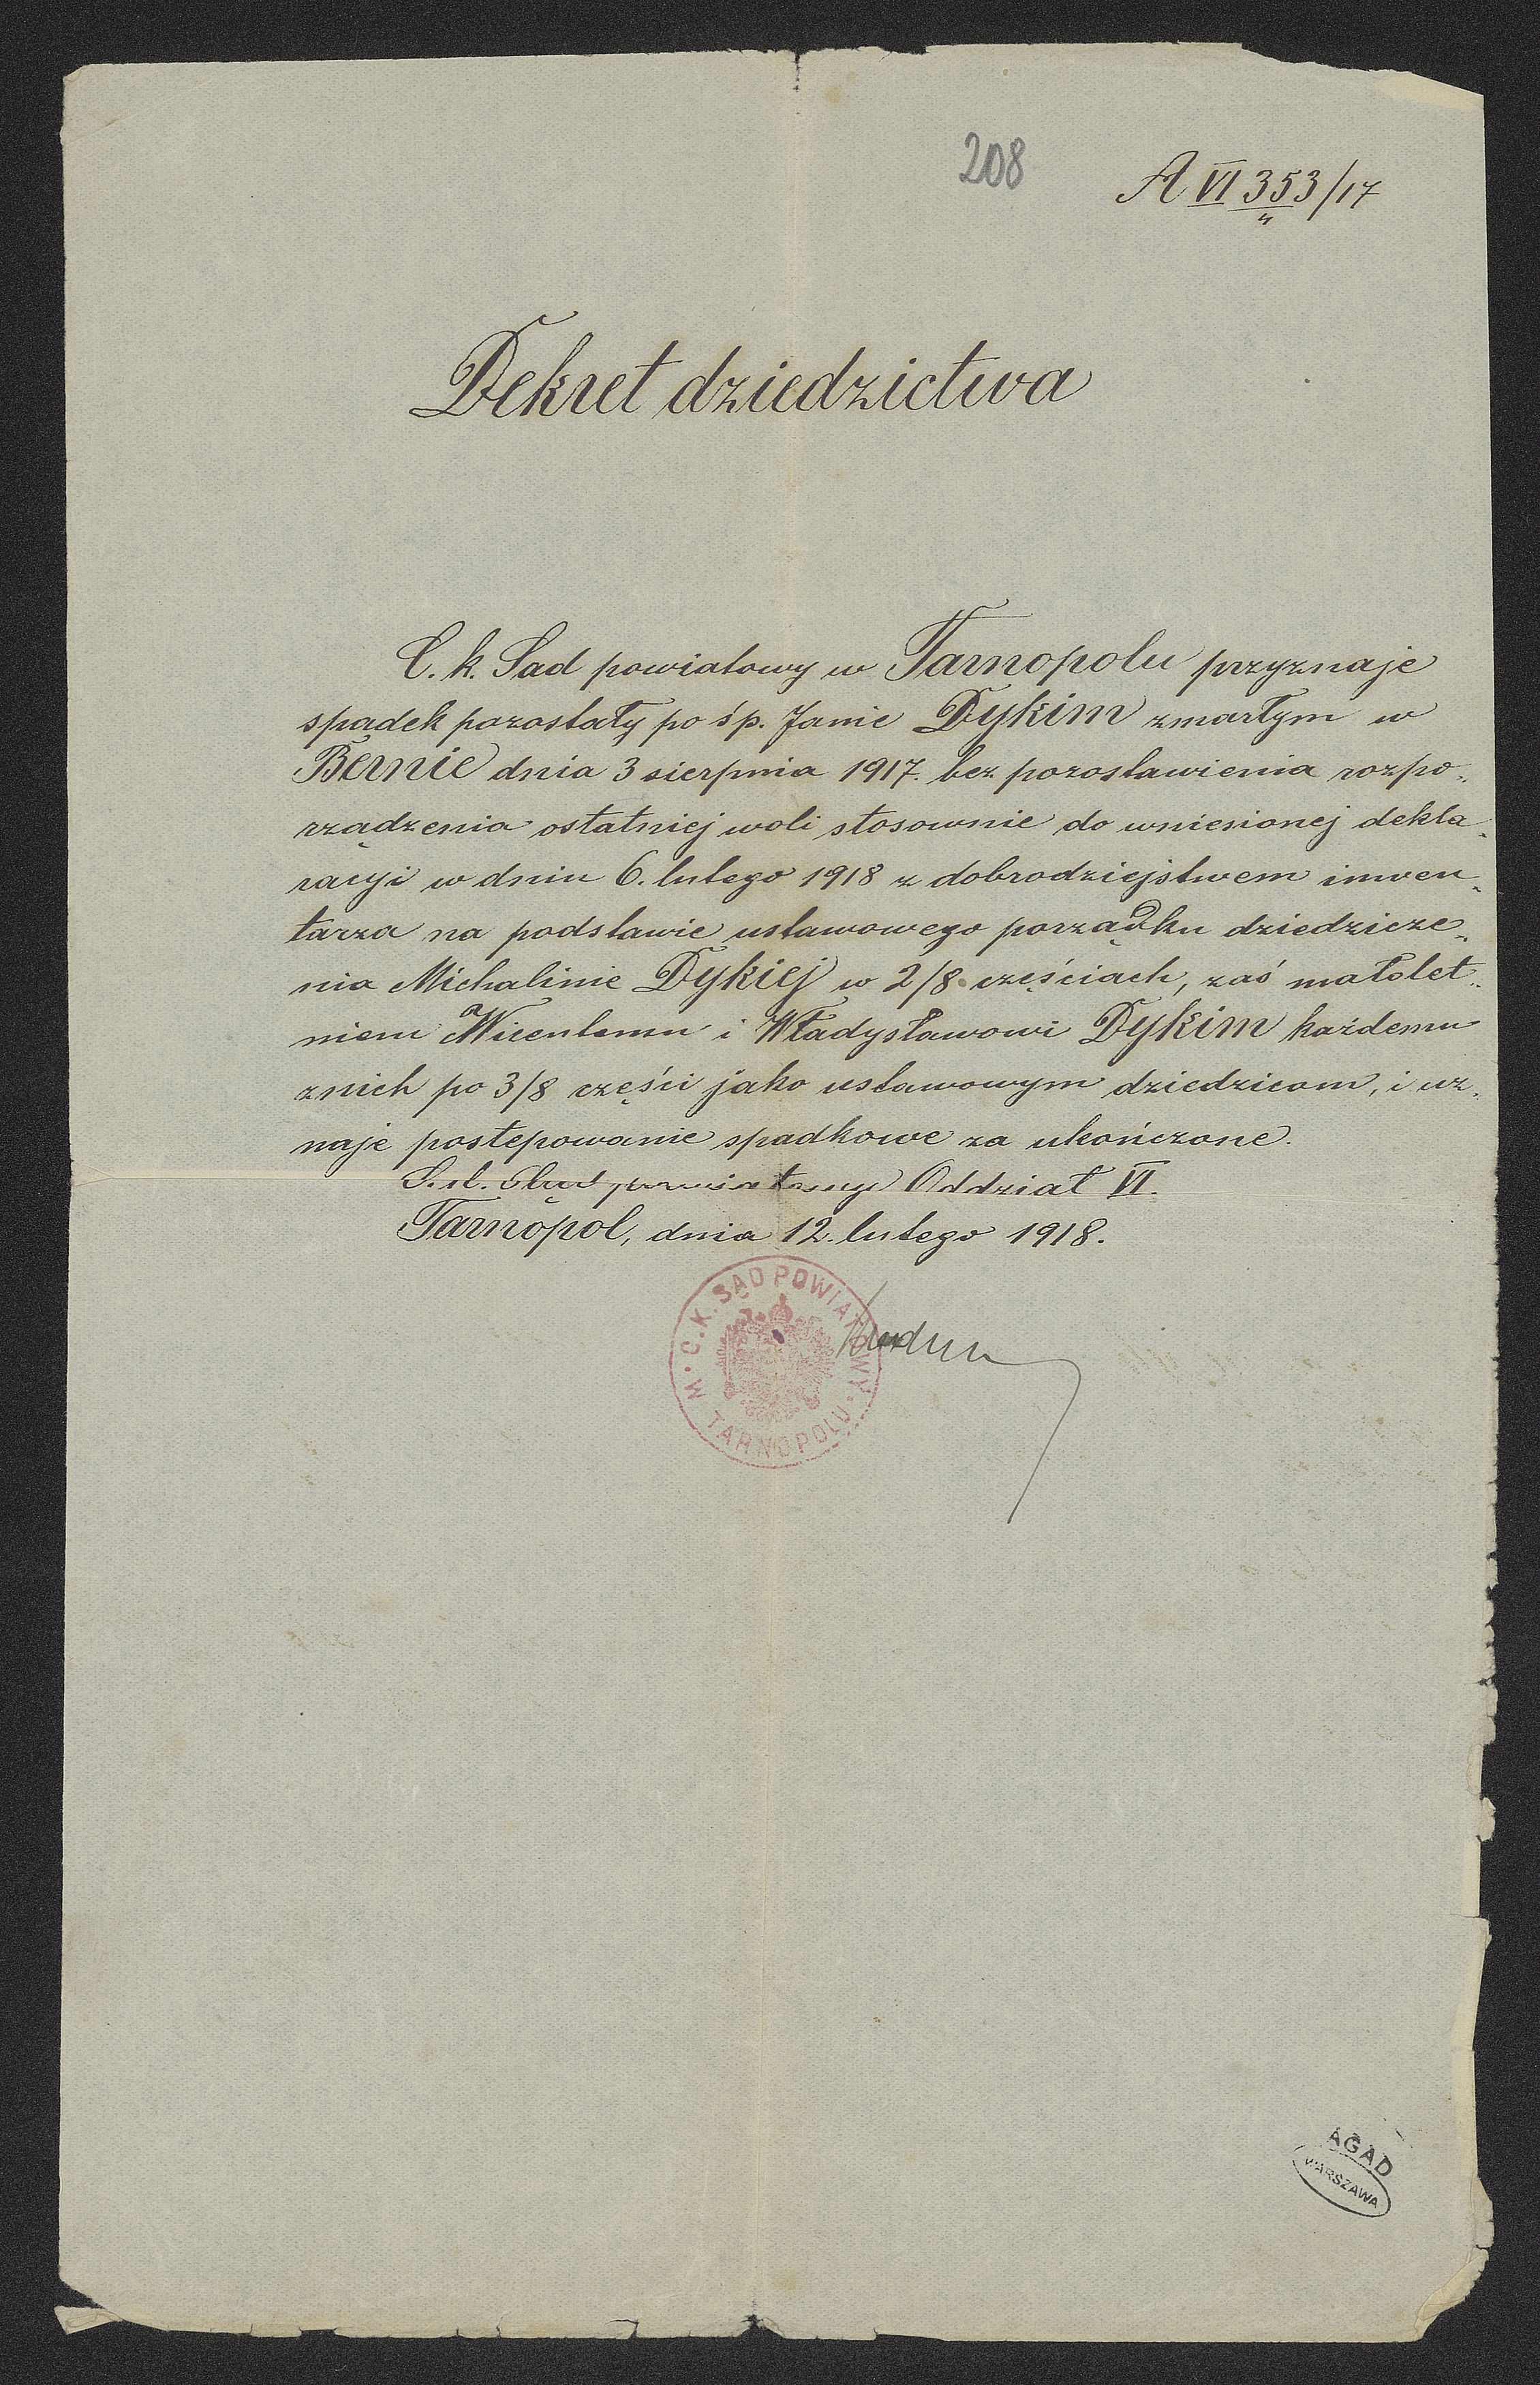 208
A VI 353/17
4
Dekret dziedzictwa
C. k. Sąd powiatowy w Tarnopolu przyznaje
spadek pozostały po śp. Janie Dykim zmarłym w
Bernie dnia 3 sierpnia 1917. bez pozostawienia rozpo-
rządzenia ostatniej woli stosownie do wniesionej dekla-
racyi w dniu 6. lutego 1918 z dobrodziejstwem inwen-
tarza na podstawie ustawowego porządku dziedzicze-
nia Michalinie Dykiej w 2/8 częściach, zaś małolet-
niem Wicentemu i Władysławowi Dykim każdemu
z nich po 3/8 części jako ustawowym dziedzicom, i uz-
naje postępowanie spadkowe za ukończone.
C. k. Sąd powiatowy Oddział VI.
Tarnopol, dnia 12. lutego 1918.
C. K. SĄD POWIATOWY
W TARNOPOLU
AGAD
WARSZAWA